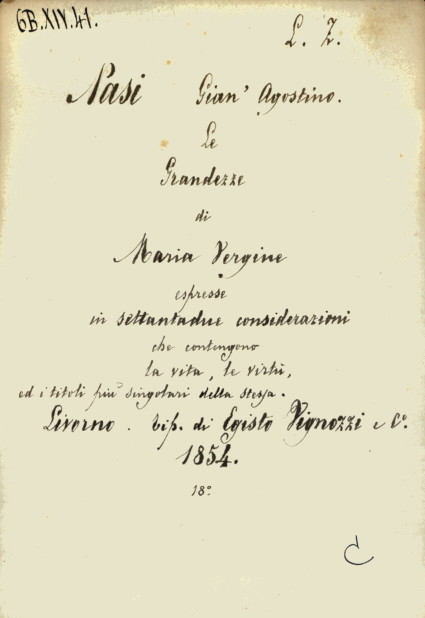 6B.XIV.41.
L. Z.
Nasi Gian' Agostino.
Le
Grandezze
di
Maria Vergine
espresse
in settantadue considerazioni
che contengono
la vita, le virtù,
ed i titoli più singolari della stessa.
Livorno. Tip. di Egisto Vignozzi e Cº.
1854.
18º
C